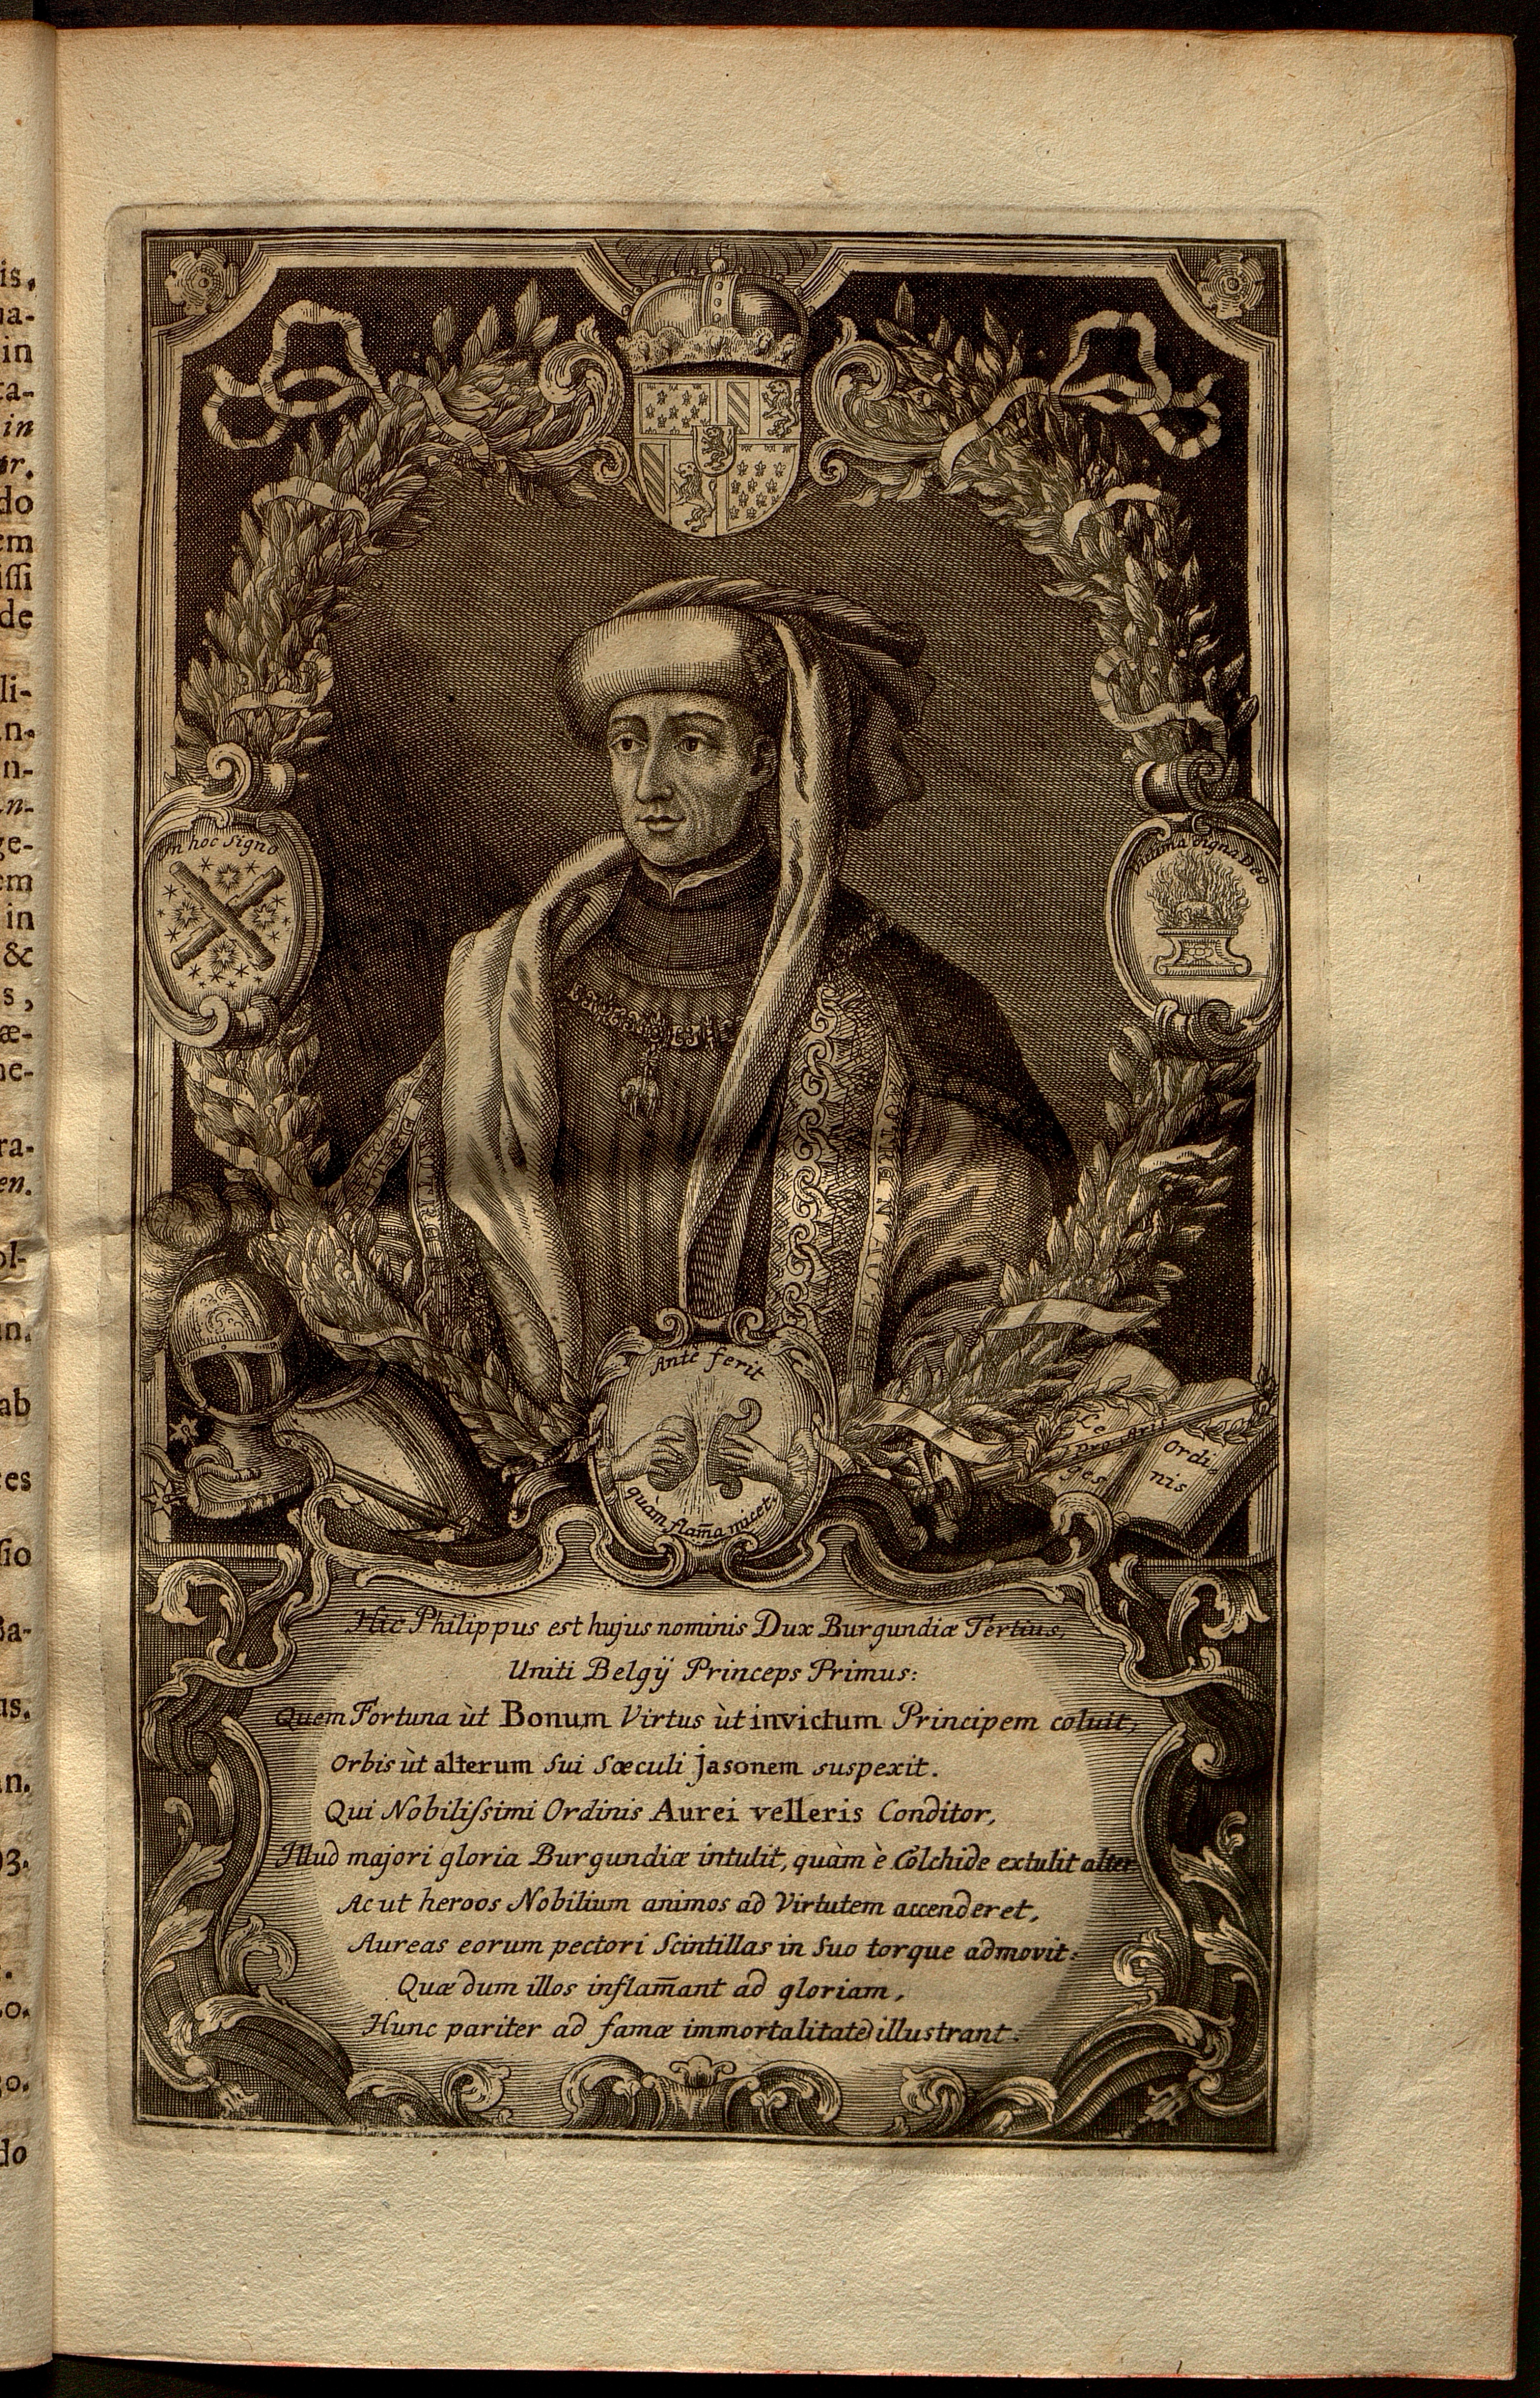 is.
in
in
do
em
de
li-
n-
ge-
em
in
&
s,
æ-
ne-
ra-
en.
ol-
ab
es
sio
Ba-
us.
do
In hoc signo
Victima digna Deo
AUTRE N AU
Ante ferit
quàm flam̃a micet.
Le
ges
pro Aris
Ordi-
nis
Hic Philippus est hujus nominis Dux Burgundiæ Tertius,
Uniti Belgÿ Princeps Primus:
Quem Fortuna ùt Bonum Virtus ùt invictum Principem coluit,
Orbis ùt alterum Sui Sæculi Jasonem suspexit.
Qui Nobilissimi Ordinis Aurei velleris Conditor,
Illud majori gloria Burgundiæ intulit, quàm è Colchide extulit alter
Ac ut heroos Nobilium animos ad Virtutem accenderet,
Aureas eorum pectori Scintillas in Suo torque admovit:
Quæ dum illos inflam̃ant ad gloriam,
Hunc pariter ad famæ immortalitatē illustrant.